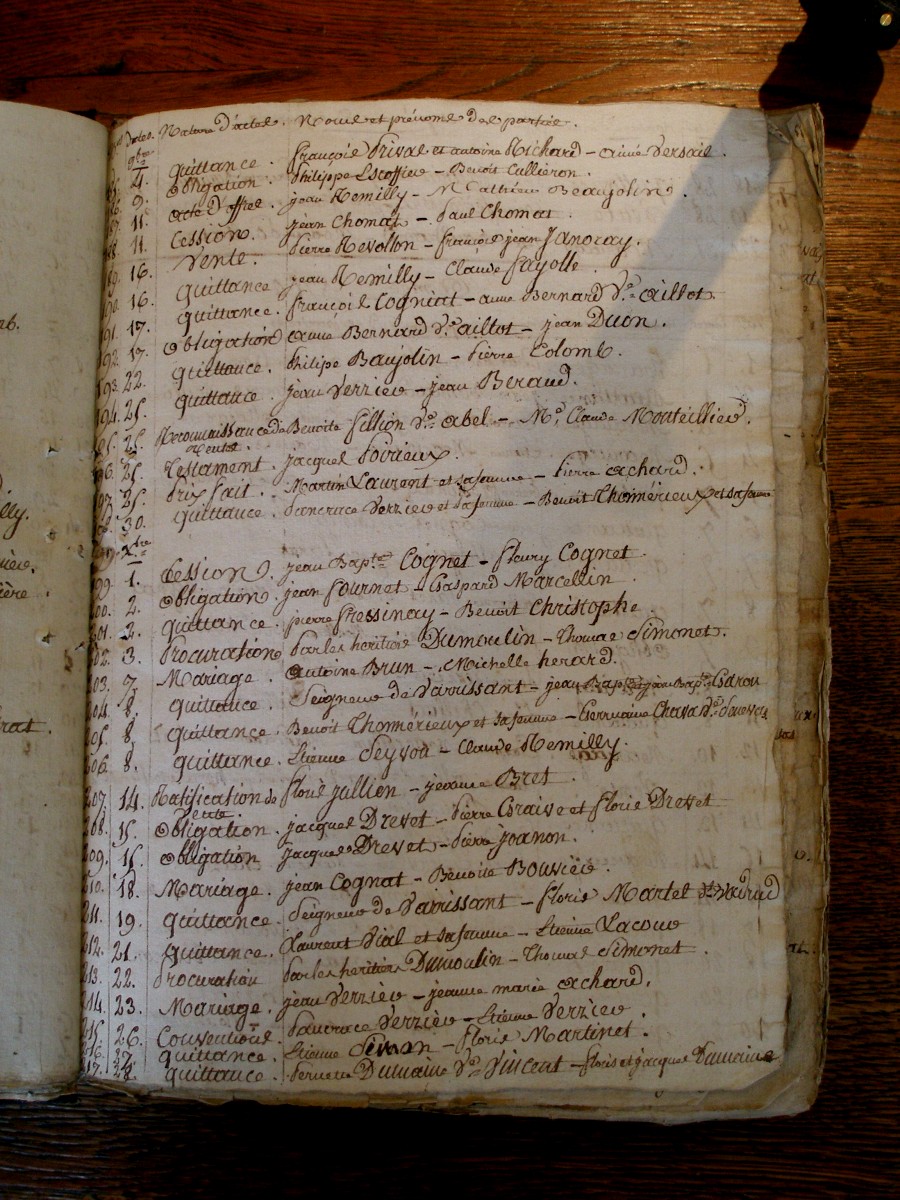 Dates. Nature d'actes. Noms et prénoms des parties.
9bre
4. quittance. françois Privat et antoine Richard - aimé Versail.
9. Obligation. Philippe Escoffier - Benoit Cullieron.
11. acte d'offres. jean Remilly - Mathieu Beaujolin.
11. Cession. jean Chomat - Paul Chomat.
Vente. Pierre Revollon - françois jean Janoray.
16. quittance jean Remilly - Claude fayolle.
16. quittance. françois Cogniat - anne Bernard Ve. aillot
91. 17. obligation anne Bernard Ve. aillot - jean Duon.
92. 17. quittance. Philipe Baujolin - Pierre Colomb.
93. 22. quittance. jean Verzieu - jean Beraud.
94. 25. Reconnaissance de Benoite fillion Ve. abel - Me. Claude Monteillier.
95. 25. rente.
96. 25. Testament. jacques Poirieux.
97. 25. Prix fait. Martin Laurent et sa femme - Pierre achard.
30. quittance. Pancrace Verzieu et sa femme - Benoit Thomérieux et sa femme
Xbre
99 1. Cession. jean Bapte. Cognet - fleury Cognet.
00. 2. obligation. jean fournet - Gaspard Marcellin
01. 2. quittance. pierre fressinay - Benoit Christophe.
02. 3. Procuration Par les heritiers Dumoulin - Thomas Simonet.
03. 7. Mariage. antoine Brun - Michelle herard.
04. 8. quittance. Seigneur de Varissant - jean Bapt. Garon
05. 8. quittance. Benoit Thomérieux et sa femme - Germaine Chavas
06. 8. quittance. Etienne Seyvon - Claude Remilly.
207. 14. Ratification de floris jullien - jeanne Bret.
vente.
208. 15. Obligation. jacques Drevet - Pierre Graive et floris Drevet
209. 15. obligation jacques Drevet - Pierre joanon.
210. 18. Mariage. jean Cognat - Benoite Bouvier.
211. 19. quittance. Seigneur de Varissant - floris Martel
212. 21. quittance. Laurent Vial et sa femme - Etienne Lacour
213. 22. Procuration Par les heritiers Dumoulin - Thomas Simonet.
214. 23. Mariage. jean Verzieu - jeanne marie achard.
215. 26. Conventions Pancrace Verzieu - Etienne Verzieu
216. 27. quittance. Etienne - floris Martinet.
17. 28. quittance. Dumaine Ve. Vincent - floris et jacques Dumaine